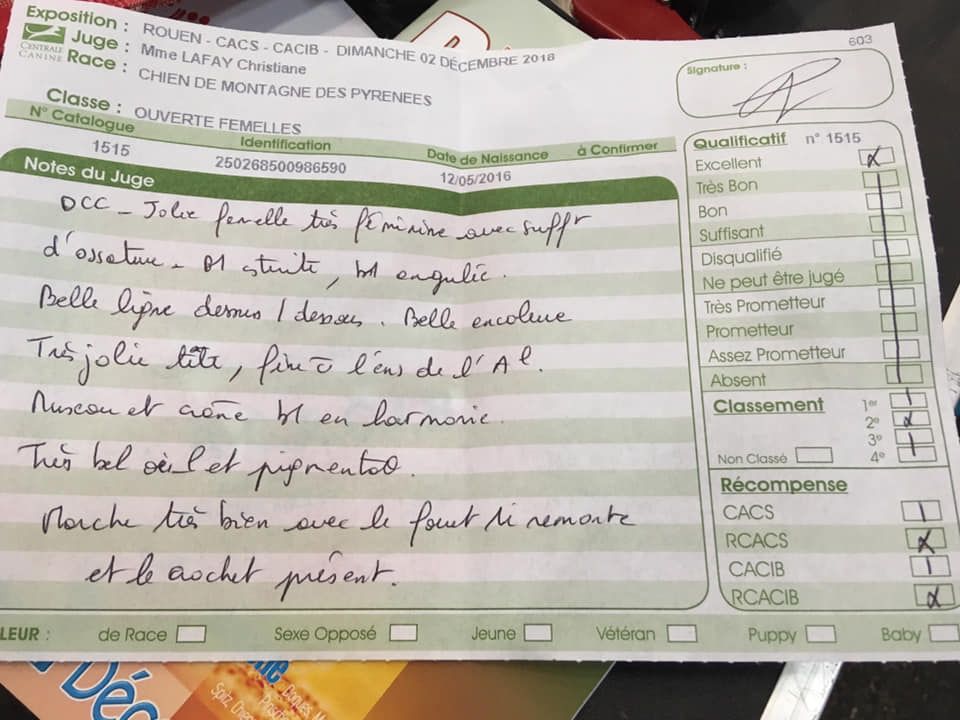 603
Exposition : ROUEN - CACS - CACIB - DIMANCHE 02 DÉCEMBRE 2018
CENTRALE CANINE
Juge : Mme LAFAY Christiane
Race : CHIEN DE MONTAGNE DES PYRENEES
Signature :
Classe : OUVERTE FEMELLES
N° Catalogue Identification Date de Naissance à Confirmer
1515 250268500986590 12/05/2016
Notes du Juge
DCC - Jolie femelle très féminine avec sufft
d'ossature - bt , bt angulée.
Belle ligne dessus / dessous. Belle encolure
Très jolie tête, fine à l'ens de l'Al.
Museau et crâne bt en harmonie.
Très bel œil et pigmentao.
Marche très bien avec le fouet qui remonte
et le crochet présent.
Qualificatif n° 1515
Excellent X
Très Bon
Bon
Suffisant
Disqualifié
Ne peut être jugé
Très Prometteur
Prometteur
Assez Prometteur
Absent
Classement 1er
2e X
3e
Non Classé 4e
Récompense
CACS
RCACS X
CACIB
RCACIB X
LEUR : de Race Sexe Opposé Jeune Vétéran Puppy Baby
Déc